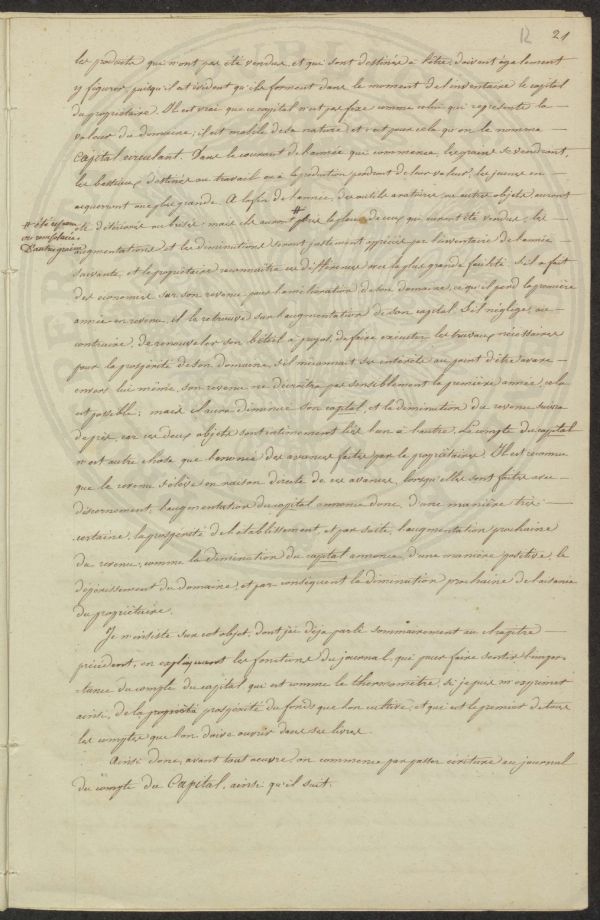 12 21
les produits qui n'ont pas été vendus, et qui sont destinés à l'être, doivent également
y figurer, puisqu'il est évident qu'ils forment dans le moment de l'inventaire le capital
du propriétaire. Il est vrai que ce capital n'est pas fixe comme celui qui représente la
valeur du domaine; il est mobile de sa nature, et c'est pour cela qu'on le nomme
Capital circulant. Dans le courant de l'année qui commence, les grains se vendront,
les bestiaux destinés au travail ou à la production perdront de leur valeur, les jeunes en
acquerront une plus grande. A la fin de l'année, des outils aratoires ou autres objets auront
été détériorés ou brisés; mais ils auront # pris la place de ceux qui auront été vendus; les
# été réparés
ou remplacés.
D'autres grains
augmentations et les diminutions seront justement appréciées par l'inventaire de l'année
suivante, et le propriétaire reconnaîtra ces différences avec la plus grande facilité. S'il a fait
des économies sur son revenu pour l'amélioration de son domaine, ce qu'il perd la première
année en revenu, il le retrouve sur l'augmentation de son capital. S'il néglige, au
contraire, de renouveler son bétail à propos, de faire exécuter les travaux nécessaires
pour la prospérité de son domaine, s'il méconnait ses intérêts au point d'être avare
envers lui même, son revenu ne décroîtra pas sensiblement la première année, cela
est possible; mais il aura diminué son capital, et la diminution du revenu suivra
de près, car ces deux objets sont intimement liés l'un à l'autre. Le compte du capital
n'est autre chose que l'annonce des avances faites par le propriétaire. Il est reconnu
que le revenu s'élève en raison directe de ces avances, lorsqu'elles sont faites avec
discernement, l'augmentation du capital annonce donc, d'une manière très
certaine, la prospérité de l'établissement, et par suite, l'augmentation prochaine
du revenu, comme la diminution du capital annonce, d'une manière positive, le
dépérissement du domaine, et par conséquent la diminution prochaine de l'aisance
du propriétaire.
Je n'insiste sur cet objet, dont j'ai déja parlé sommairement au chapitre
précédent, en expliquant les fonctions du journal, que pour faire sentir l'impor-
tance du compte du capital qui est comme le thermomètre, si je puis m'exprimer
ainsi, de la propriété prospérité du fonds que l'on cultive, et qui est le premier de tous
les comptes que l'on doive ouvrir dans ses livres.
Ainsi donc, avant tout œuvre, on commence par passer écriture au journal
du compte du Capital, ainsi qu'il suit.